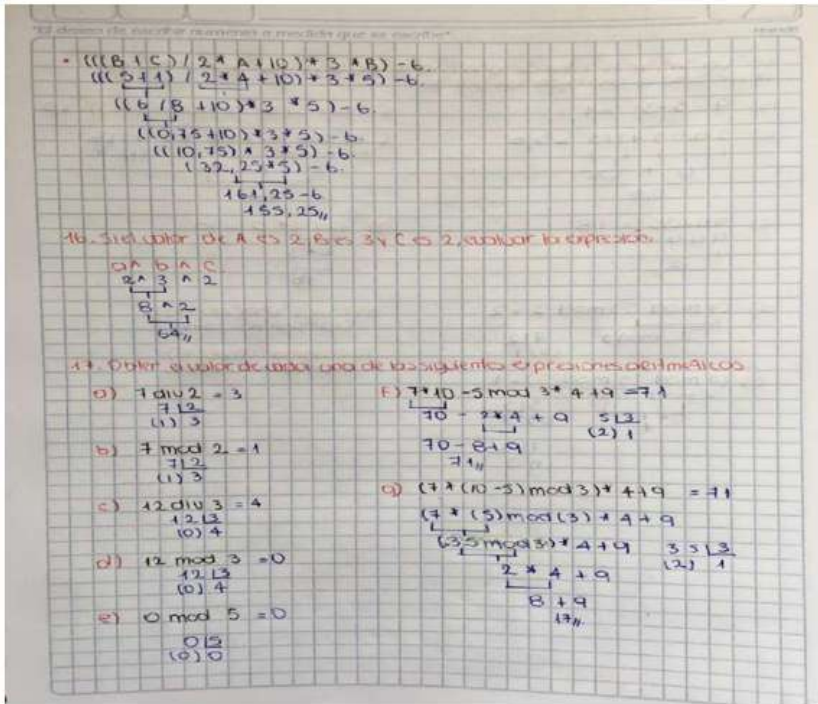 "El deseo de escribir aumenta a medida que se escribe"
• (((B + C) / 2 * A + 10) * 3 * B) - 6.
(((5+1) / 2 * 4 + 10) * 3 * 5) - 6.
((6 / 8 + 10) * 3 * 5) - 6.
((0,75 + 10) * 3 * 5) - 6.
((10,75) * 3 * 5) - 6.
(32,25 * 5) - 6.
161,25 - 6
155,25,,
16. Si el valor de A es 2, B es 3 y C es 2, evaluar la expresión.
a ^ b ^ c
2 ^ 3 ^ 2
8 ^ 2
64,,
17. Obtener el valor de cada una de las siguientes expresiones aritméticas
a) 7 div 2 = 3
7 | 2
(1) 3
b) 7 mod 2 = 1
7 | 2
(1) 3
c) 12 div 3 = 4
12 | 3
(0) 4
d) 12 mod 3 = 0
12 | 3
(0) 4
e) 0 mod 5 = 0
0 | 5
(0) 0
f) 7*10 - 5 mod 3 * 4 + 9 = 71
70 - 2 * 4 + 9 5 | 3
(2) 1
70 - 8 + 9
71,,
g) (7 * (10 - 5) mod 3) * 4 + 9 = 71
(7 * (5) mod (3) * 4 + 9
(35 mod 3) * 4 + 9 35 | 3
(2) 1
2 * 4 + 9
8 + 9
17,,